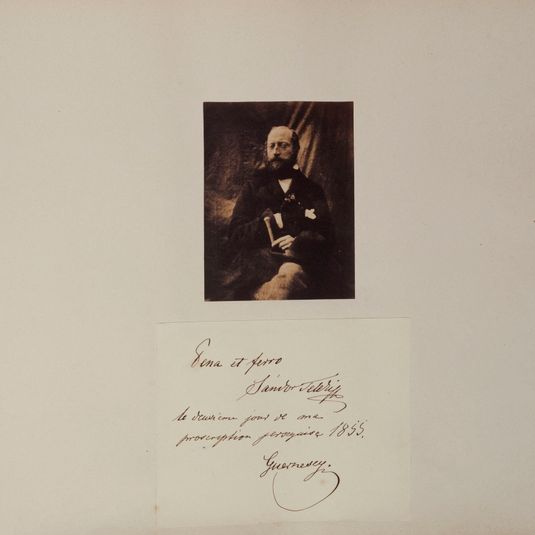 Pena et ferro
Sándor Teleky
le deuxieme jour de ma
proscription 1855.
Guernesey.